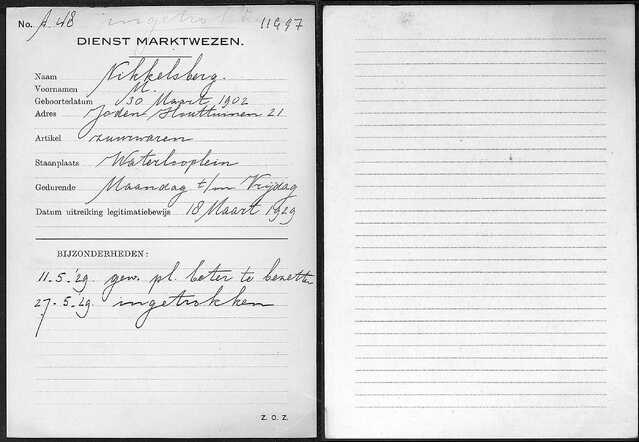 No. A. 48 ingetrokken 11997
DIENST MARKTWEZEN.
Naam Nikkelsberg.
Voornamen M.
Geboortedatum 30 Maart 1902
Adres Joden Houttuinen 21
Artikel zuurwaren
Staanplaats Waterlooplein
Gedurende Maandag t/m Vrijdag
Datum uitreiking legitimatiebewijs 18 Maart 1929
BIJZONDERHEDEN:
11-5-'29. gew. pl. beter te bezetten
27-5-29. ingetrokken
Z. O. Z.